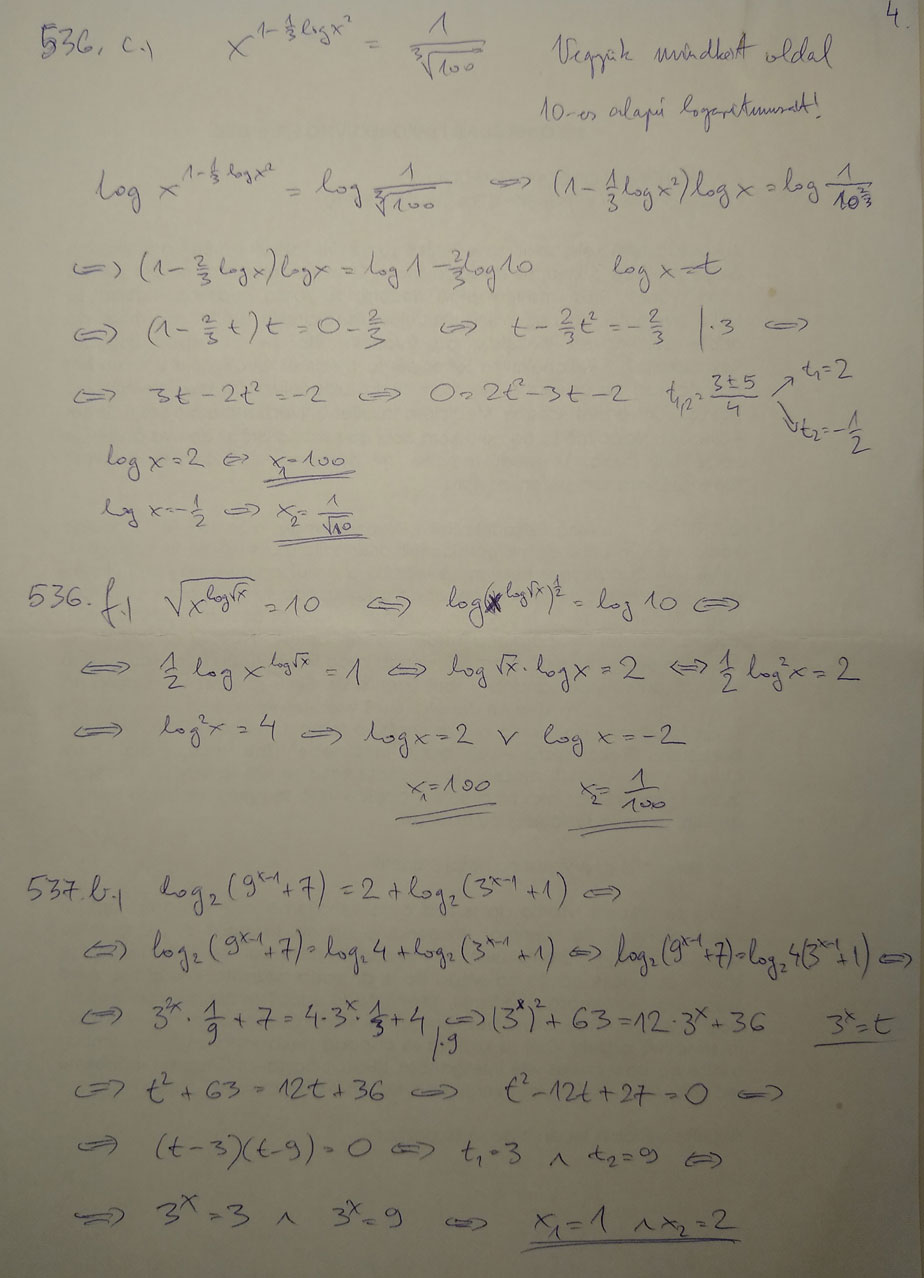 4.
536. c.) x^{1-\frac{1}{3}\log x^2} = \frac{1}{\sqrt[3]{100}} Vegyük mindkét oldal
10-es alapú logaritmusát!
\log x^{1-\frac{1}{3}\log x^2} = \log \frac{1}{\sqrt[3]{100}} ⇔ (1-\frac{1}{3}\log x^2)\log x = \log \frac{1}{10^{\frac{2}{3}}}
⇔ (1-\frac{2}{3}\log x)\log x = \log 1 - \frac{2}{3}\log 10 \log x = t
⇔ (1-\frac{2}{3}t)t = 0 - \frac{2}{3} ⇔ t - \frac{2}{3}t^2 = -\frac{2}{3} |·3 ⇔
⇔ 3t - 2t^2 = -2 ⇔ 0 = 2t^2 - 3t - 2 t_{1,2} = \frac{3±5}{4} ↗ t_1 = 2 ↘ t_2 = -\frac{1}{2}
\log x = 2 ⇔ x_1 = 100
\log x = -\frac{1}{2} ⇔ x_2 = \frac{1}{\sqrt{10}}
536. f.) \sqrt{x^{\log\sqrt{x}}} = 10 ⇔ \log(x^{\log\sqrt{x}})^{\frac{1}{2}} = \log 10 ⇔
⇔ \frac{1}{2}\log x^{\log\sqrt{x}} = 1 ⇔ \log\sqrt{x}·\log x = 2 ⇔ \frac{1}{2}\log^2 x = 2
⇔ \log^2 x = 4 ⇔ \log x = 2 ∨ \log x = -2
x_1 = 100 x_2 = \frac{1}{100}
537. b.) \log_2(9^{x-1}+7) = 2 + \log_2(3^{x-1}+1) ⇔
⇔ \log_2(9^{x-1}+7) = \log_2 4 + \log_2(3^{x-1}+1) ⇔ \log_2(9^{x-1}+7) = \log_2 4(3^{x-1}+1) ⇔
⇔ 3^{2x}·\frac{1}{9} + 7 = 4·3^x·\frac{1}{3} + 4 |·9 ⇔ (3^x)^2 + 63 = 12·3^x + 36 3^x = t
⇔ t^2 + 63 = 12t + 36 ⇔ t^2 - 12t + 27 = 0 ⇔
⇔ (t-3)(t-9) = 0 ⇔ t_1 = 3 ∧ t_2 = 9 ⇔
⇔ 3^x = 3 ∧ 3^x = 9 ⇔ x_1 = 1 ∧ x_2 = 2